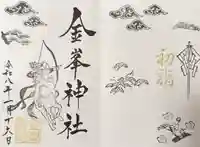 金峯神社
令和八年一月十六日
初詣